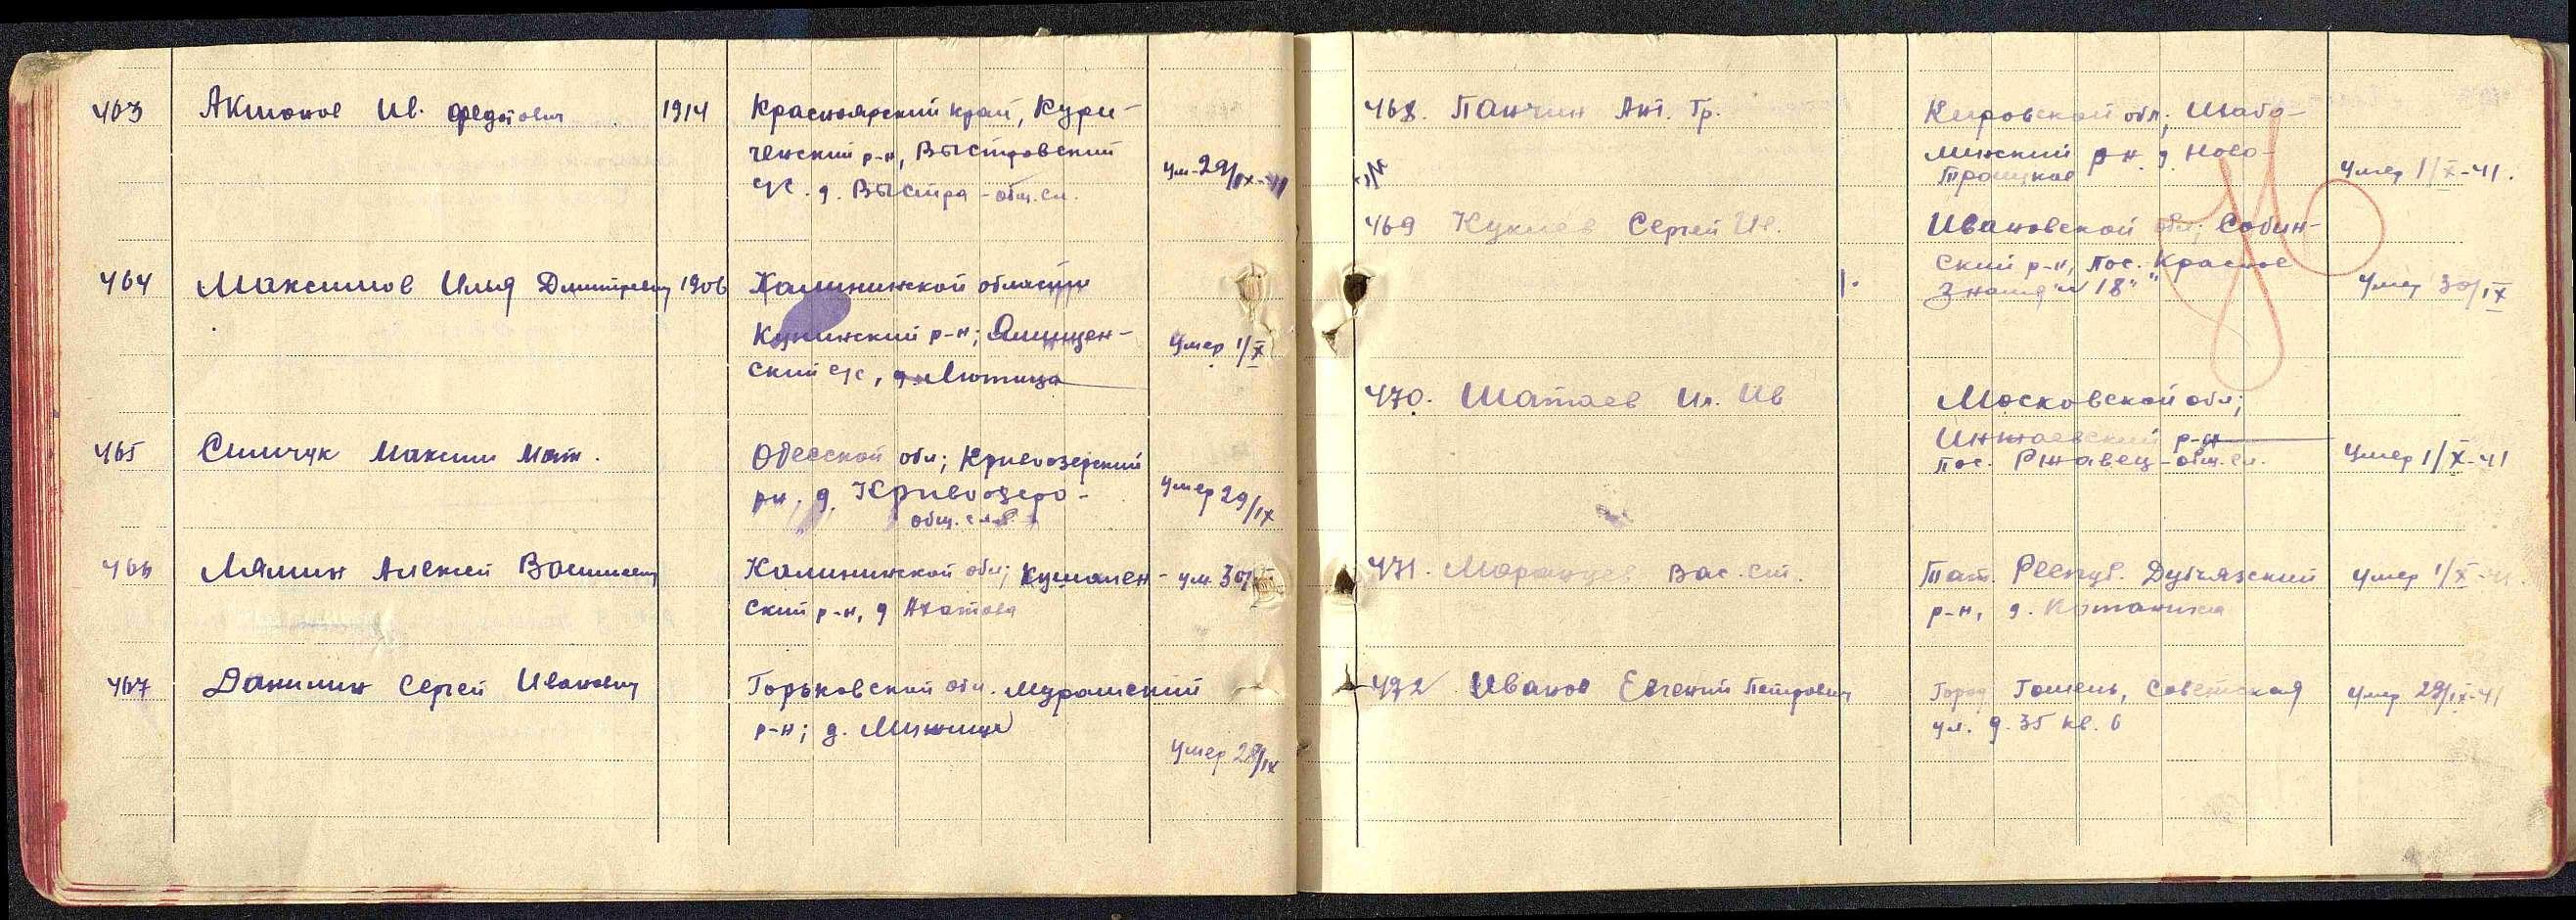 463 Акшонов Ив. Федотович 1914 Красноярский край, Кури-
ченский р-н, Выстровский
с/с. д. Выстра - общ. сл. ум. 29/IX-41
464 Максимов Илья Дмитриевич 1906 Калининской области
Кунинский р-н;
ский с/с, д. Лютица Умер 1/X
465 Симчук Максим Мат. Одесской обл; Кривозерский
рн, д. Кривоозеро - Умер 29/IX
общ. слав.
466 Мямин Алексей Васильевич Калининской обл; Кушален- ум. 30/
ский р-н, д Ахатова
467 Данилин Сергей Иванович Горьковской обл. Мурашский
р-н; д.
Умер 28/IX
468. Панчин Ант. Гр. Кировской обл; Шаба-
линский р-н д. Ново-
Троицкое Умер 1/X-41.
469 Кукиев Сергей Ив. Ивановской обл; Собин-
ский р-н, пос. Красное
Знамя "№ 18" Умер 30/IX
470. Шатаев Ил. Ив Московской обл;
р-н
пос. Ржавец - общ. сл. Умер 1/X-41
471. Вас. Ст. Тат. Респуб. Дубъязский Умер 1/X-41.
р-н, д.
472 Иванов Евгений Петрович Город Гомель, Советская Умер 29/IX-41
ул. д. 35 кв. 6